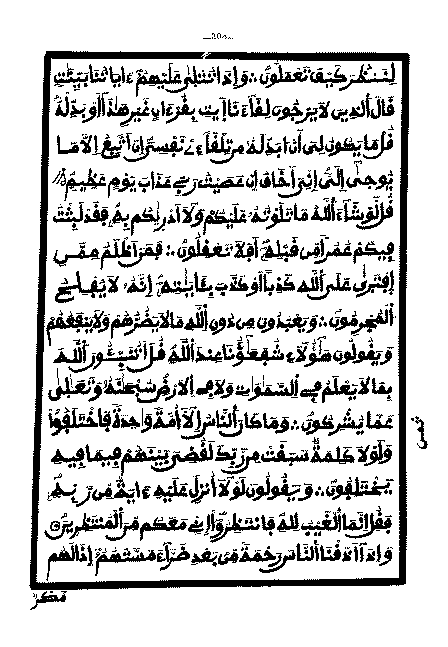 لِنَنظُرَ كَيْفَ تَعْمَلُونَ ؞ وَإِذَا تُتْلَىٰ عَلَيْهِمُۥٓ ءَايَاتُنَا بَيِّنَٰتٖ
قَالَ ٱلَّذِينَ لَا يَرْجُونَ لِقَآءَنَا ٱيتِ بِقُرْءَانٍ غَيْرِ هَٰذَآ أَوْ بَدِّلْهُ
قُلْ مَا يَكُونُ لِيَ أَنُ ابَدِّلَهُۥ مِن تِلْقَآءِےْ نَفْسِيَ إِنَ اَتَّبِعُ إِلَّا مَا
يُوحَىٰٓ إِلَيَّ إِنِّيَ أَخَافُ إِنْ عَصَيْتُ رَبِّے عَذَابَ يَوْمٍ عَظِيمٖ
قُل لَّوْ شَآءَ ٱللَّهُ مَا تَلَوْتُهُۥ عَلَيْكُمْ وَلَآ أَدْرَىٰكُم بِهِۦ فَقَدْ لَبِثْتُ
فِيكُمْ عُمُرًا مِّن قَبْلِهِۦٓ أَفَلَا تَعْقِلُونَ ؞ فَمَنَ اَظْلَمُ مِمَّنِ
اِفْتَرَىٰ عَلَى ٱللَّهِ كَذِبًا أَوْ كَذَّبَ بِـَٔايَٰتِهِۦٓ إِنَّهُۥ لَا يُفْلِحُ
ٱلْمُجْرِمُونَ ؞ وَيَعْبُدُونَ مِن دُونِ ٱللَّهِ مَا لَا يَضُرُّهُمْ وَلَا يَنفَعُهُمْ
وَيَقُولُونَ هَٰٓؤُلَآءِ شُفَعَٰٓؤُنَا عِندَ ٱللَّهِ قُلَ اَتُنَبِّـُٔونَ ٱللَّهَ
بِمَا لَا يَعْلَمُ فِے ٱلسَّمَٰوَٰتِ وَلَا فِے ٱلَارْضِ سُبْحَٰنَهُۥ وَتَعَٰلَىٰ
عَمَّا يُشْرِكُونَ ؞ وَمَا كَانَ ٱلنَّاسُ إِلَّآ أُمَّةٗ وَٰحِدَةٗ فَٱخْتَلَفُواْ
وَلَوْلَا كَلِمَةٞ سَبَقَتْ مِن رَّبِّكَ لَقُضِيَ بَيْنَهُمْ فِيمَا فِيهِ
يَخْتَلِفُونَ ؞ وَيَقُولُونَ لَوْلَآ أُنزِلَ عَلَيْهِ ءَايَةٞ مِّن رَّبِّهِۦ
فَقُلِ اِنَّمَا ٱلْغَيْبُ لِلَّهِ فَٱنتَظِرُوٓاْ إِنِّے مَعَكُم مِّنَ ٱلْمُنتَظِرِينَ
وَإِذَآ أَذَقْنَا ٱلنَّاسَ رَحْمَةٗ مِّنۢ بَعْدِ ضَرَّآءَ مَسَّتْهُمُۥٓ إِذَا لَهُم
ثمن
مكر